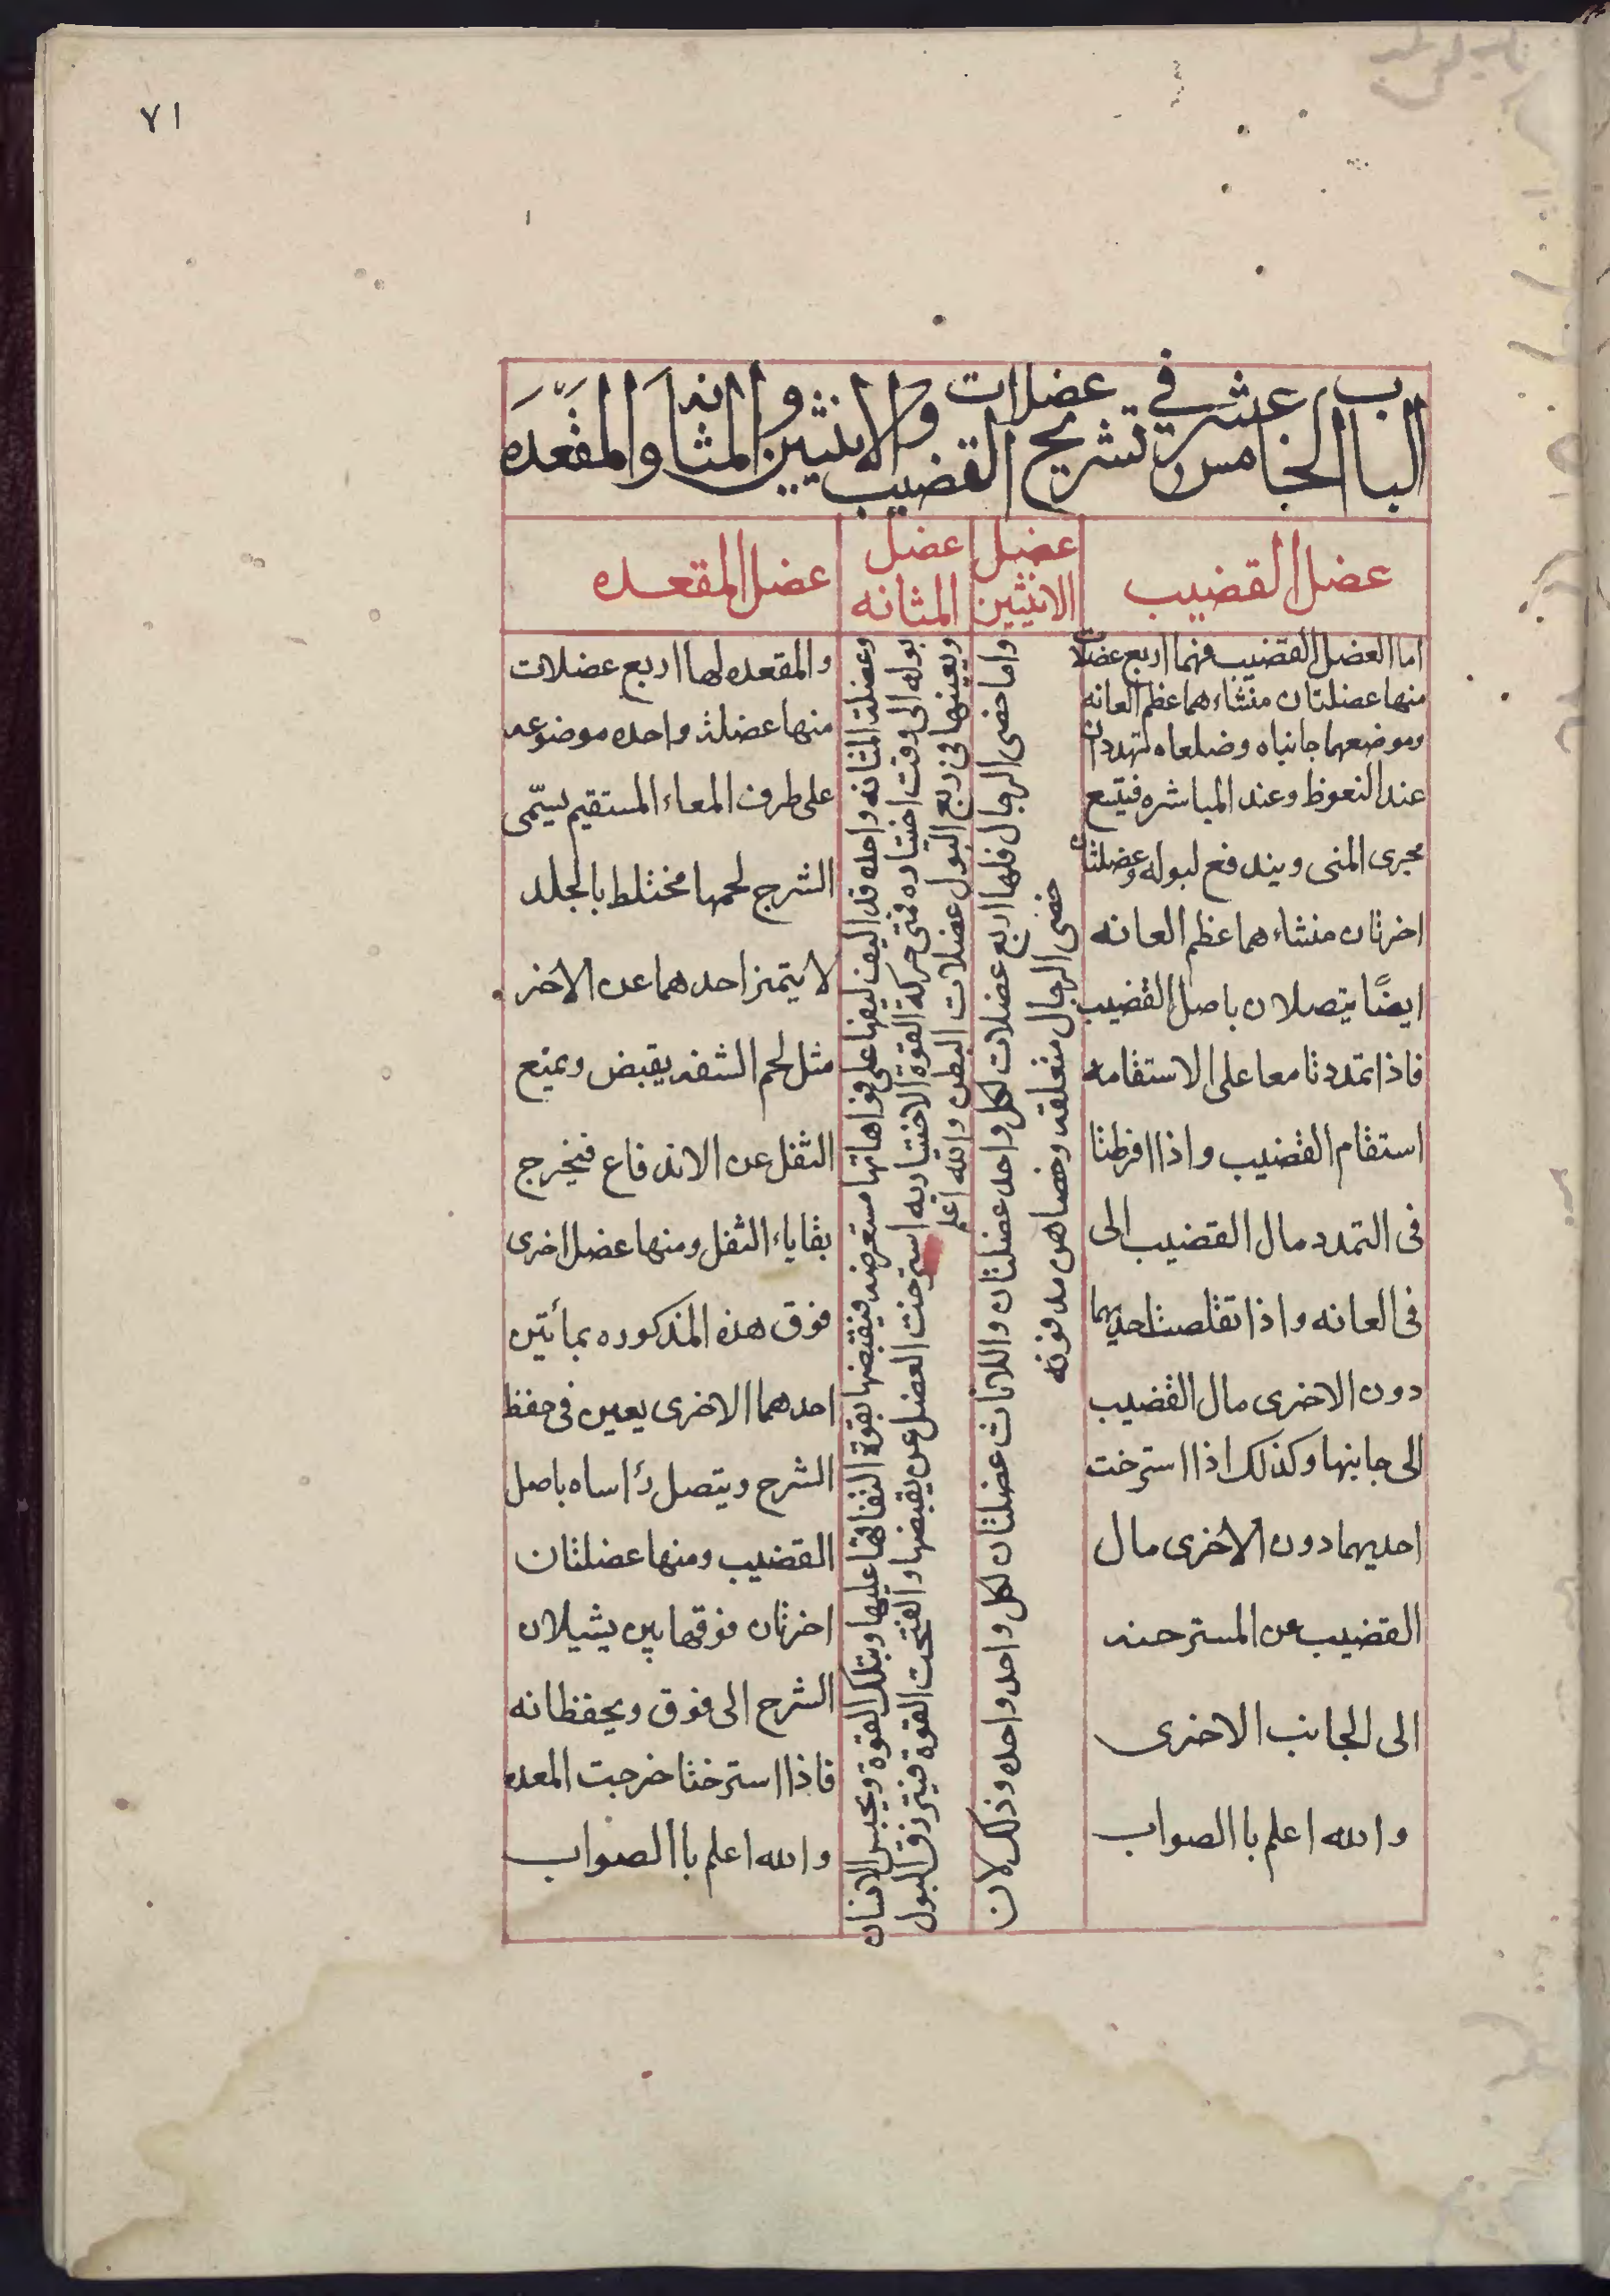 ٧١
الباب الخامس عشر في تشريح عضلات القضيب والانثيين والمثانه والمقعده
عضل القضيب
اما العضل القضيب فهما اربع عضلات
منها عضلتان منشاءهما عظم العانه
وموضعهما جانباه وضلعاه لتهددان
عند النعوظ وعند المباشره فيتسع
مجرى المنى ويندفع لبوله وعضلتان
اخرتان منشاءهما عظم العانه
ايضًا يتصلان باصل القضيب
فاذا تمددتا معا على الاستقامه
استقام القضيب واذا افرطتا
فى التمدد مال القضيب الى
فى العانه واذا تقلصت احديهما
دون الاخرى مال القضيب
الى جانبها وكذلك اذا استرخت
احديهما دون الاخرى مال
القضيب عن المسترحنه
الى الجانب الاخرى
والله اعلم باالصواب
عضل الانثيين
واما خصى الرجال فلها اربع عضلات لكل واحد عضلتان واللاناث عضلتان لكل واحد واحده وذلك لان
خصى الرجال متعلقه وخصاهن مدفونه
عضل المثانه
وعضلة المثانه واحده قد اليف ليفها على فواهاتها مستعرضه فيقبضها بقوة التفافها عليها وبتلك القوة ويحبس الانسان
بوله الى وقت اختياره فمتى حركة القوة الاختياريه استرخت العضل عن يقبضها وانفتحت القوة فيترزق البول
ويعينها فى ربع البول عضلات البطن والله اعلم
عضل المقعده
والمقعده لها اربع عضلات
منها عضلة واحده موضوعه
على طرف المعاء المستقيم يسمّى
الشرج لحمها مختلط بالجلد
لا يتميز احدهما عن الاخر
مثل لحم الشفه يقبض ويمنع
الثفل عن الاندفاع فيخرج
بقاياء الثفل ومنها عضل اخرى
فوق هذه المذكوره بمأتين
احدهما الاخرى يعين فى حفظ
الشرج ويتصل رأساه باصل
القضيب ومنها عضلتان
اخرتان فوقهاين يشيلان
الشرج الى فوق ويحفظانه
فاذا استرختا خرجت المعده
والله اعلم باالصواب